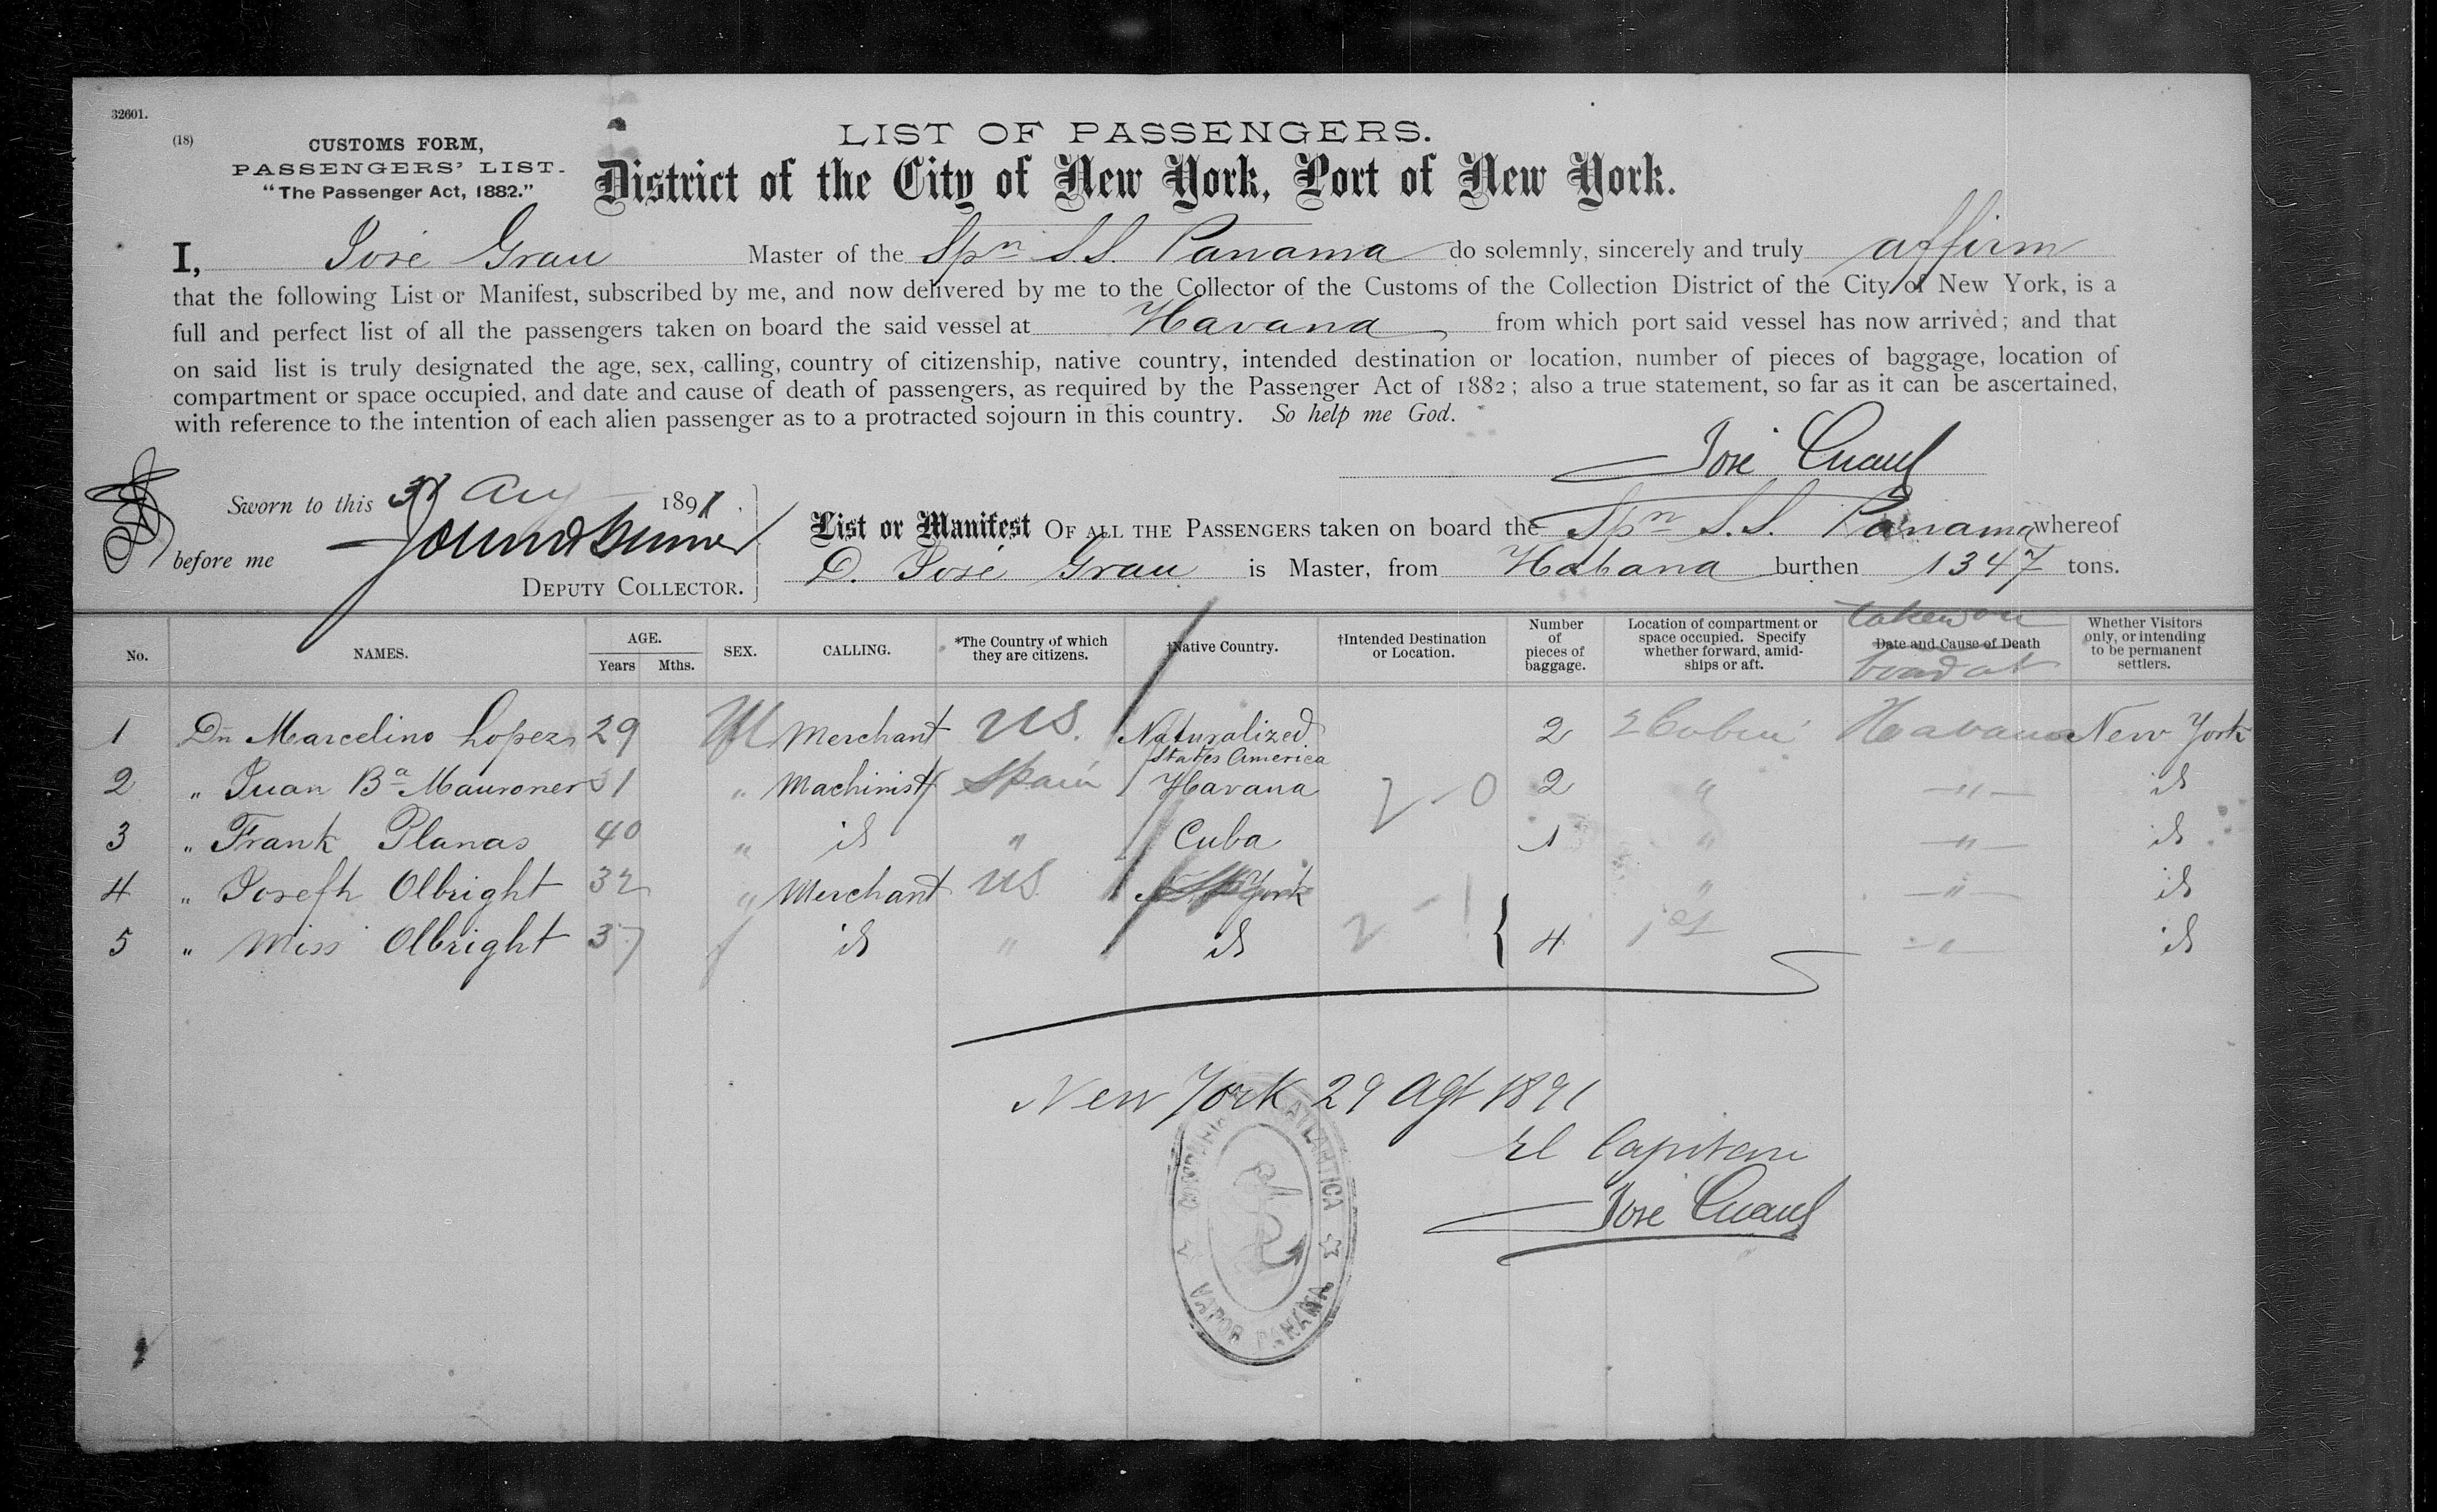 32601.
(18)
CUSTOMS FORM,
PASSENGERS' LIST.
"The Passenger Act, 1882."
LIST OF PASSENGERS.
District of the City of New York, Port of New York.
I, José Grau Master of the Spn S.S. Panama do solemnly, sincerely and truly affirm
that the following List or Manifest, subscribed by me, and now delivered by me to the Collector of the Customs of the Collection District of the City of New York, is a
full and perfect list of all the passengers taken on board the said vessel at Havana from which port said vessel has now arrived; and that
on said list is truly designated the age, sex, calling, country of citizenship, native country, intended destination or location, number of pieces of baggage, location of
compartment or space occupied, and date and cause of death of passengers, as required by the Passenger Act of 1882; also a true statement, so far as it can be ascertained,
with reference to the intention of each alien passenger as to a protracted sojourn in this country. So help me God.
José
Sworn to this Aug 1891.
before me
DEPUTY COLLECTOR.
List or Manifest OF ALL THE PASSENGERS taken on board the Spn S.S. Panama whereof
D. José Grau is Master, from Habana burthen 1347 tons.
No. NAMES. AGE. Years Mths. SEX. CALLING. *The Country of which they are citizens. †Native Country. †Intended Destination or Location. Number of pieces of baggage. Location of compartment or space occupied. Specify whether forward, amidships or aft. Date and Cause of Death taken on board at Whether Visitors only, or intending to be permanent settlers.
1 Dn Marcelino Lopez 29 M Merchant US. Naturalized States America 2 Havana New York
2 " Juan Ba Mauroner 31 " Machinist Spain Havana 2-0 2 " -"- id
3 " Frank Planas 40 " id " Cuba 1 " -"- id
4 " Joseph Olbright 32 " Merchant US. York " -"- id
5 " Miss Olbright 37 f id " id 2-1 4 1st -"- id
New York 29 Agt 1891
El Capitan
José
COMPAÑIA TRASATLANTICA
VAPOR PANAMA